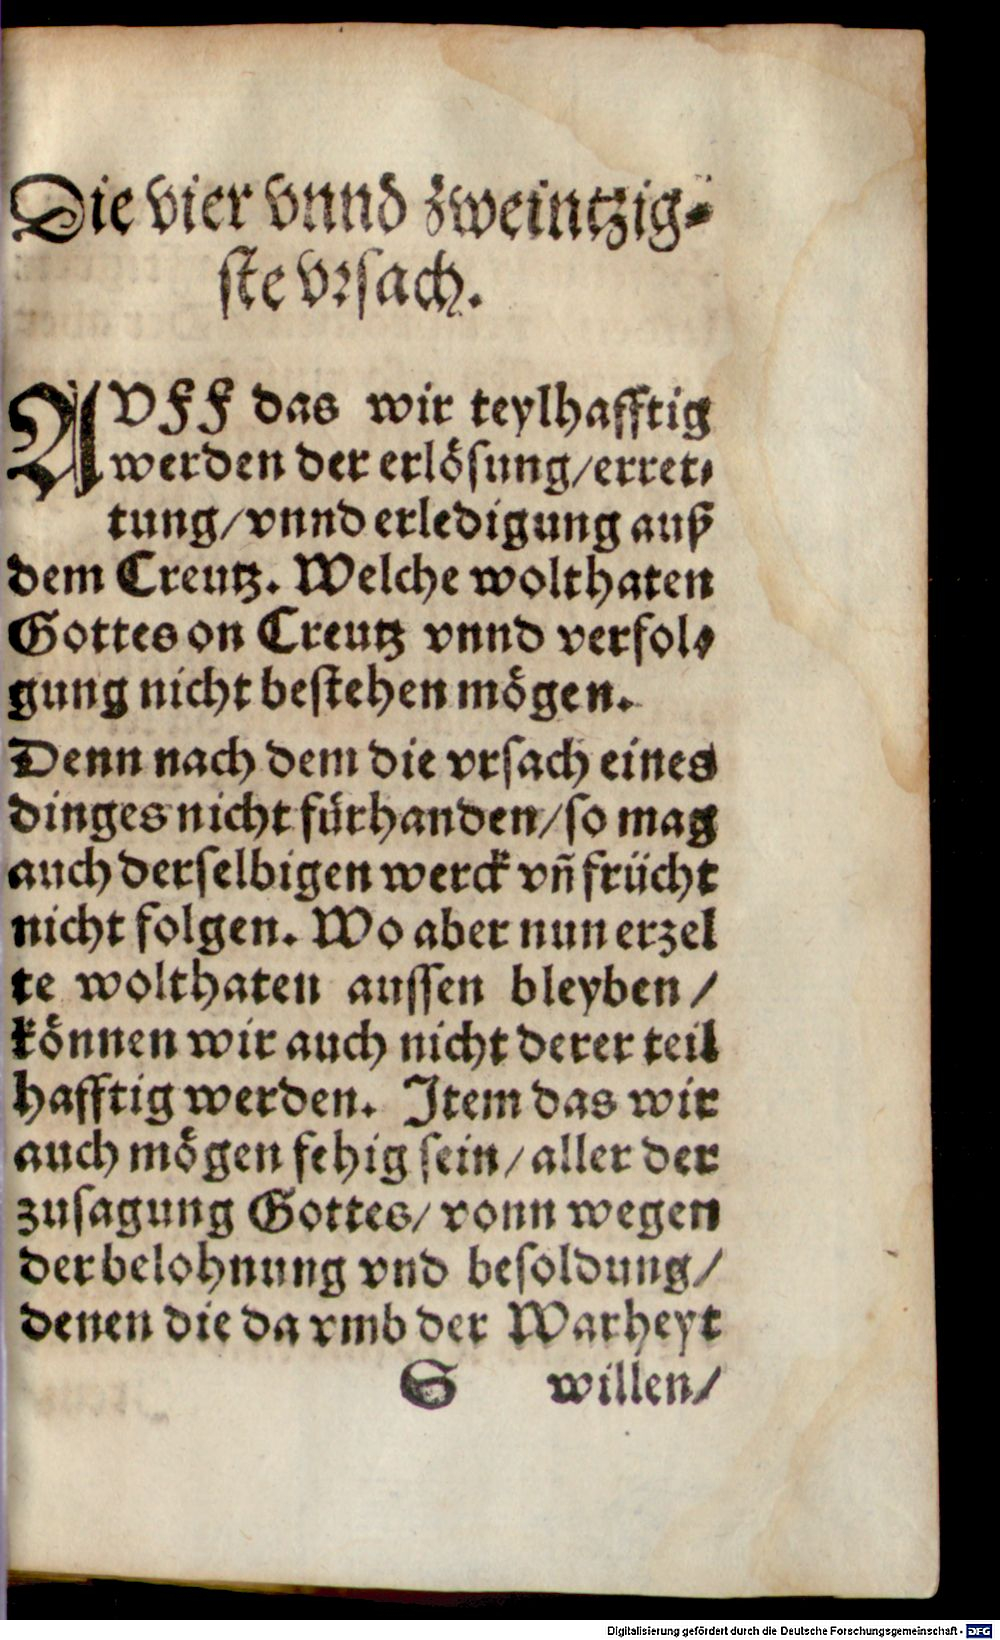 Die vier vnnd zweintzig⸗
ste vrsach.
AVFF das wir teylhafftig
werden der erlösung/erret⸗
tung/vnnd erledigung auß
dem Creutz. Welche wolthaten
Gottes on Creutz vnnd verfol⸗
gung nicht bestehen mögen.
Denn nach dem die vrsach eines
dinges nicht fürhanden/so mag
auch derselbigen werck vñ frücht
nicht folgen. Wo aber nun erzel
te wolthaten aussen bleyben/
können wir auch nicht derer teil
hafftig werden. Item das wir
auch mögen fehig sein/aller der
zusagung Gottes/vonn wegen
der belohnung vnd besoldung/
denen die da vmb der Warheyt
S willen/
Digitalisierung gefördert durch die Deutsche Forschungsgemeinschaft - DFG